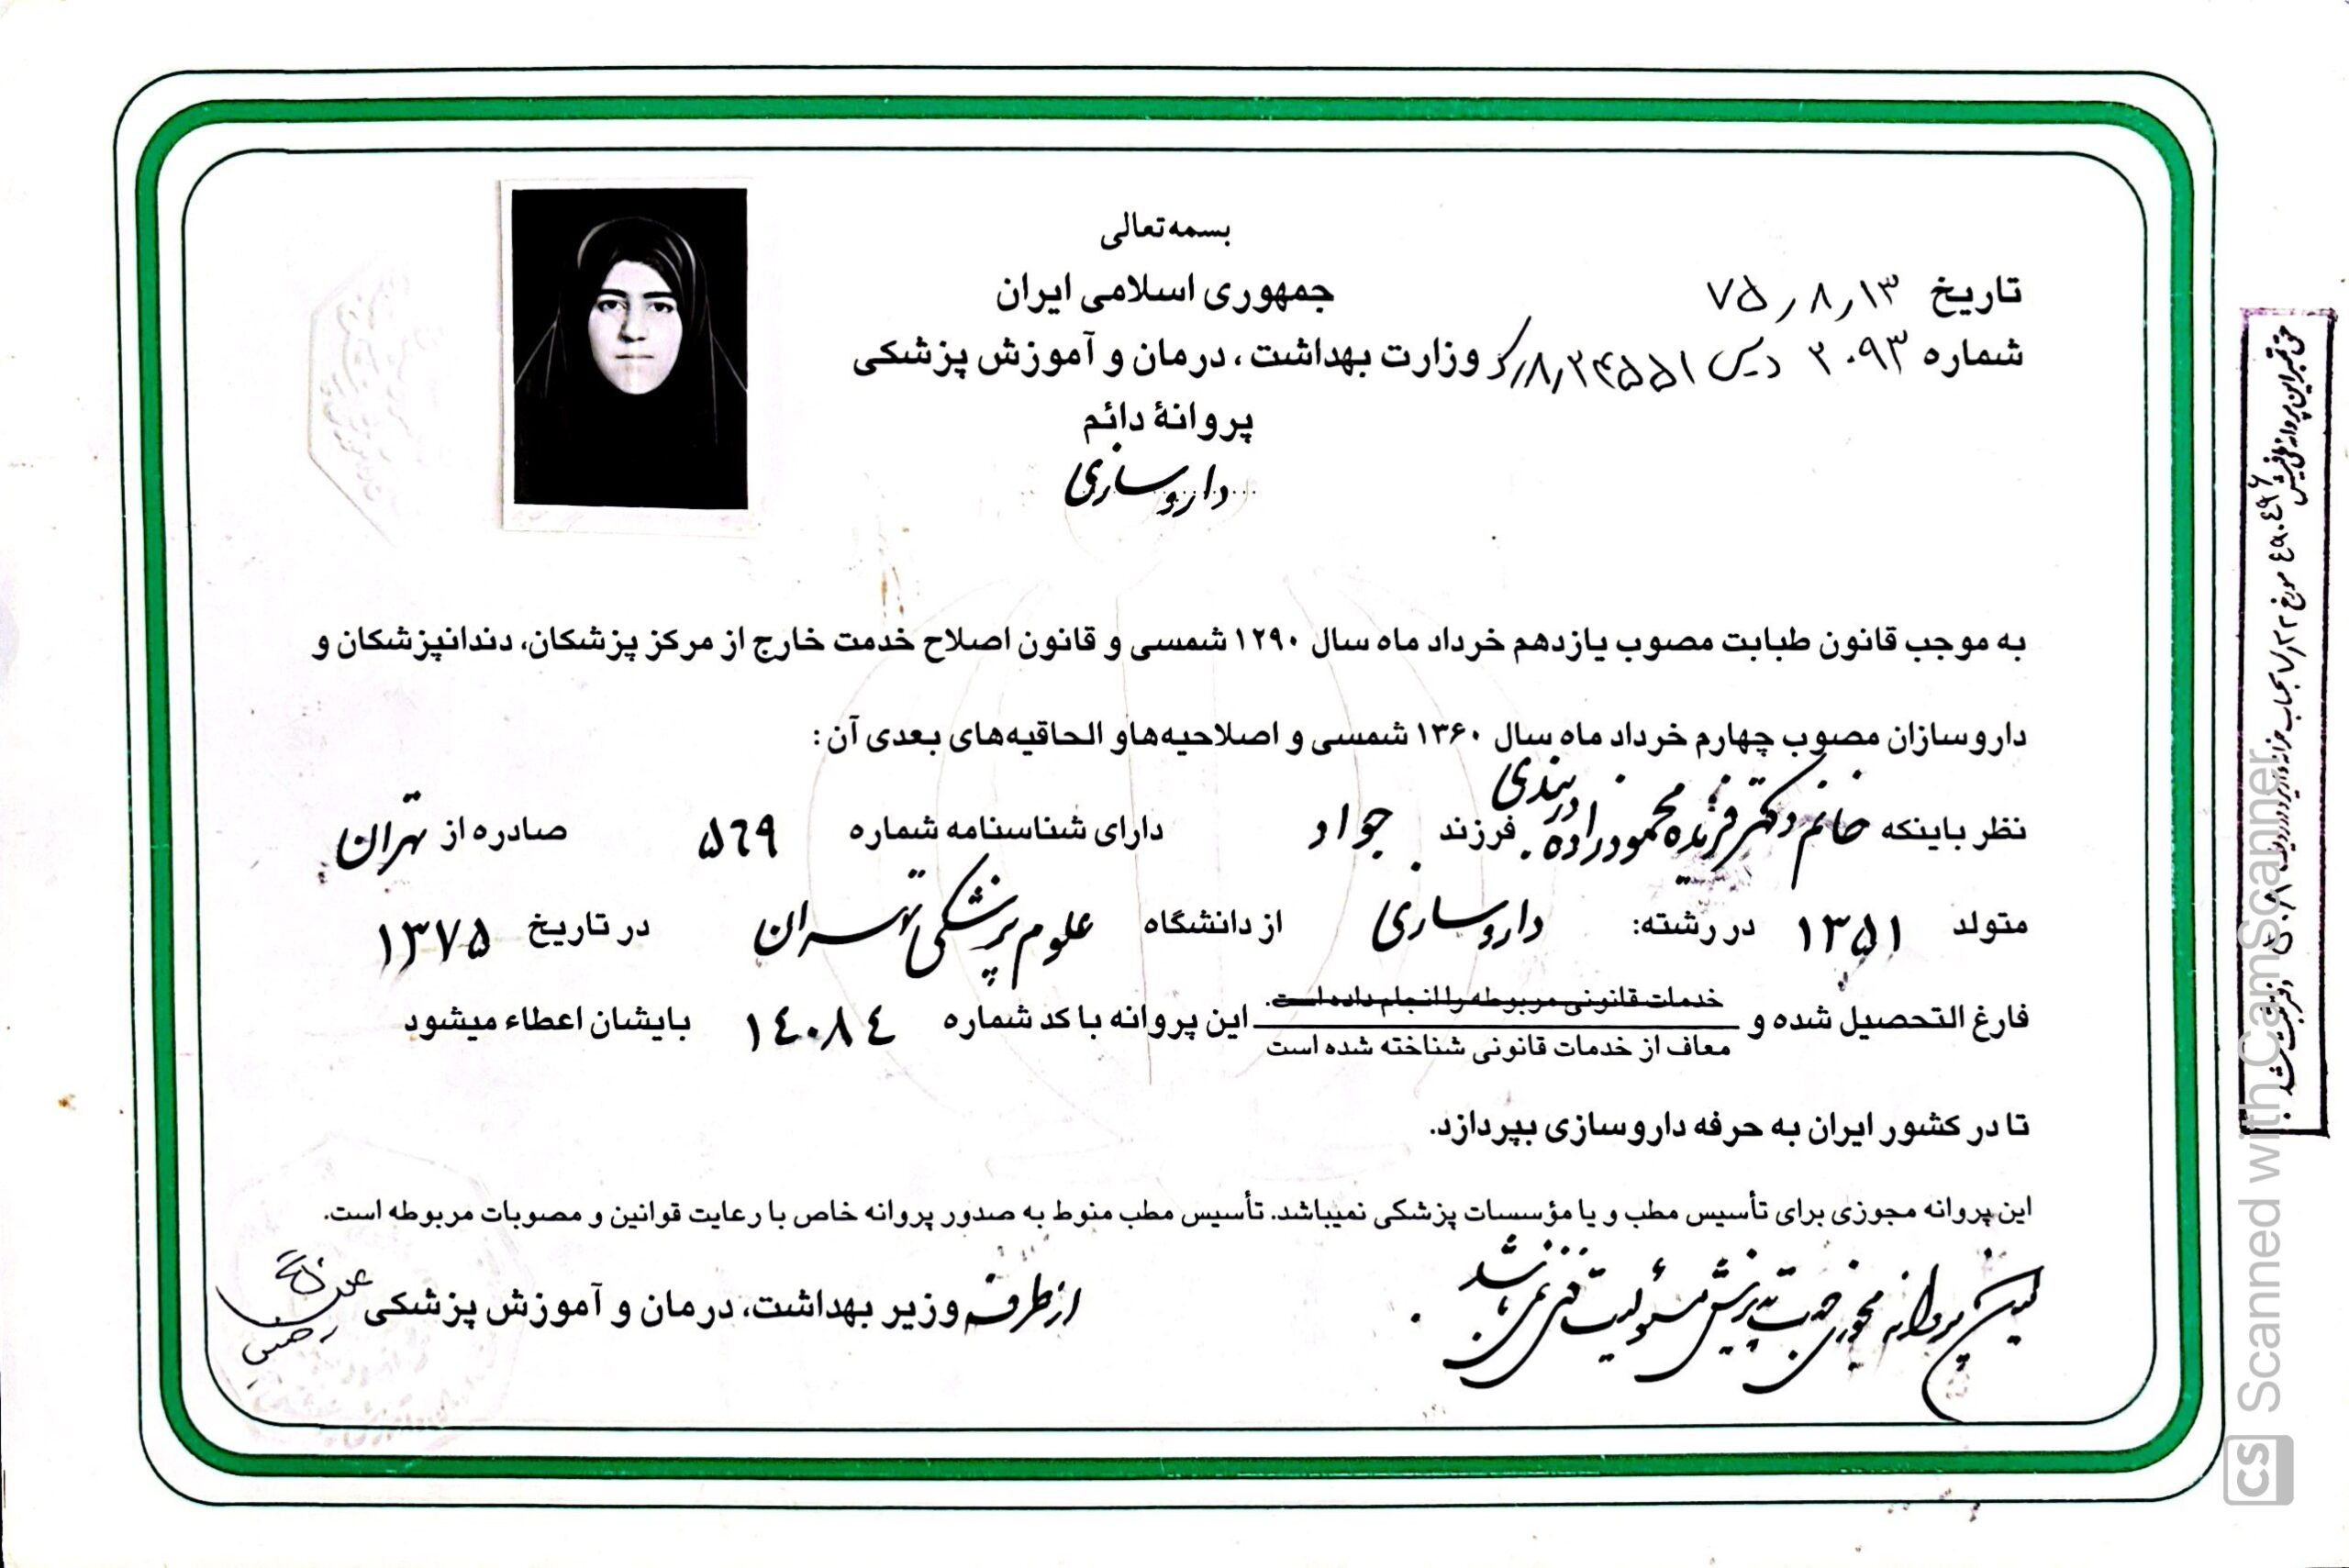 بسمه‌تعالی
جمهوری اسلامی ایران
وزارت بهداشت، درمان و آموزش پزشکی
پروانهٔ دائم
داروسازی
تاریخ ۷۵٫۸٫۱۳
شماره ۲۰۹۳
به موجب قانون طبابت مصوب یازدهم خرداد ماه سال ۱۲۹۰ شمسی و قانون اصلاح خدمت خارج از مرکز پزشکان، دندانپزشکان و
داروسازان مصوب چهارم خرداد ماه سال ۱۳۶۰ شمسی و اصلاحیه‌هاو الحاقیه‌های بعدی آن:
نظر باینکه خانم دکتر محمودزاده دربندی فرزند جواد دارای شناسنامه شماره ۵۶۹ صادره از تهران
متولد ۱۳۵۱ در رشته: داروسازی از دانشگاه علوم پزشکی تهران در تاریخ ۱۳۷۵
فارغ التحصیل شده و خدمات قانونی مربوطه را انجام داده است.
معاف از خدمات قانونی شناخته شده است
این پروانه با کد شماره ۱۴۰۸۴ بایشان اعطاء میشود
تا در کشور ایران به حرفه داروسازی بپردازد.
این پروانه مجوزی برای تأسیس مطب و یا مؤسسات پزشکی نمیباشد. تأسیس مطب منوط به صدور پروانه خاص با رعایت قوانین و مصوبات مربوطه است.
این پروانه مجوزی جهت پذیرش مسئولیت فنی نمی‌باشد.
از طرف وزیر بهداشت، درمان و آموزش پزشکی
CS Scanned with CamScanner